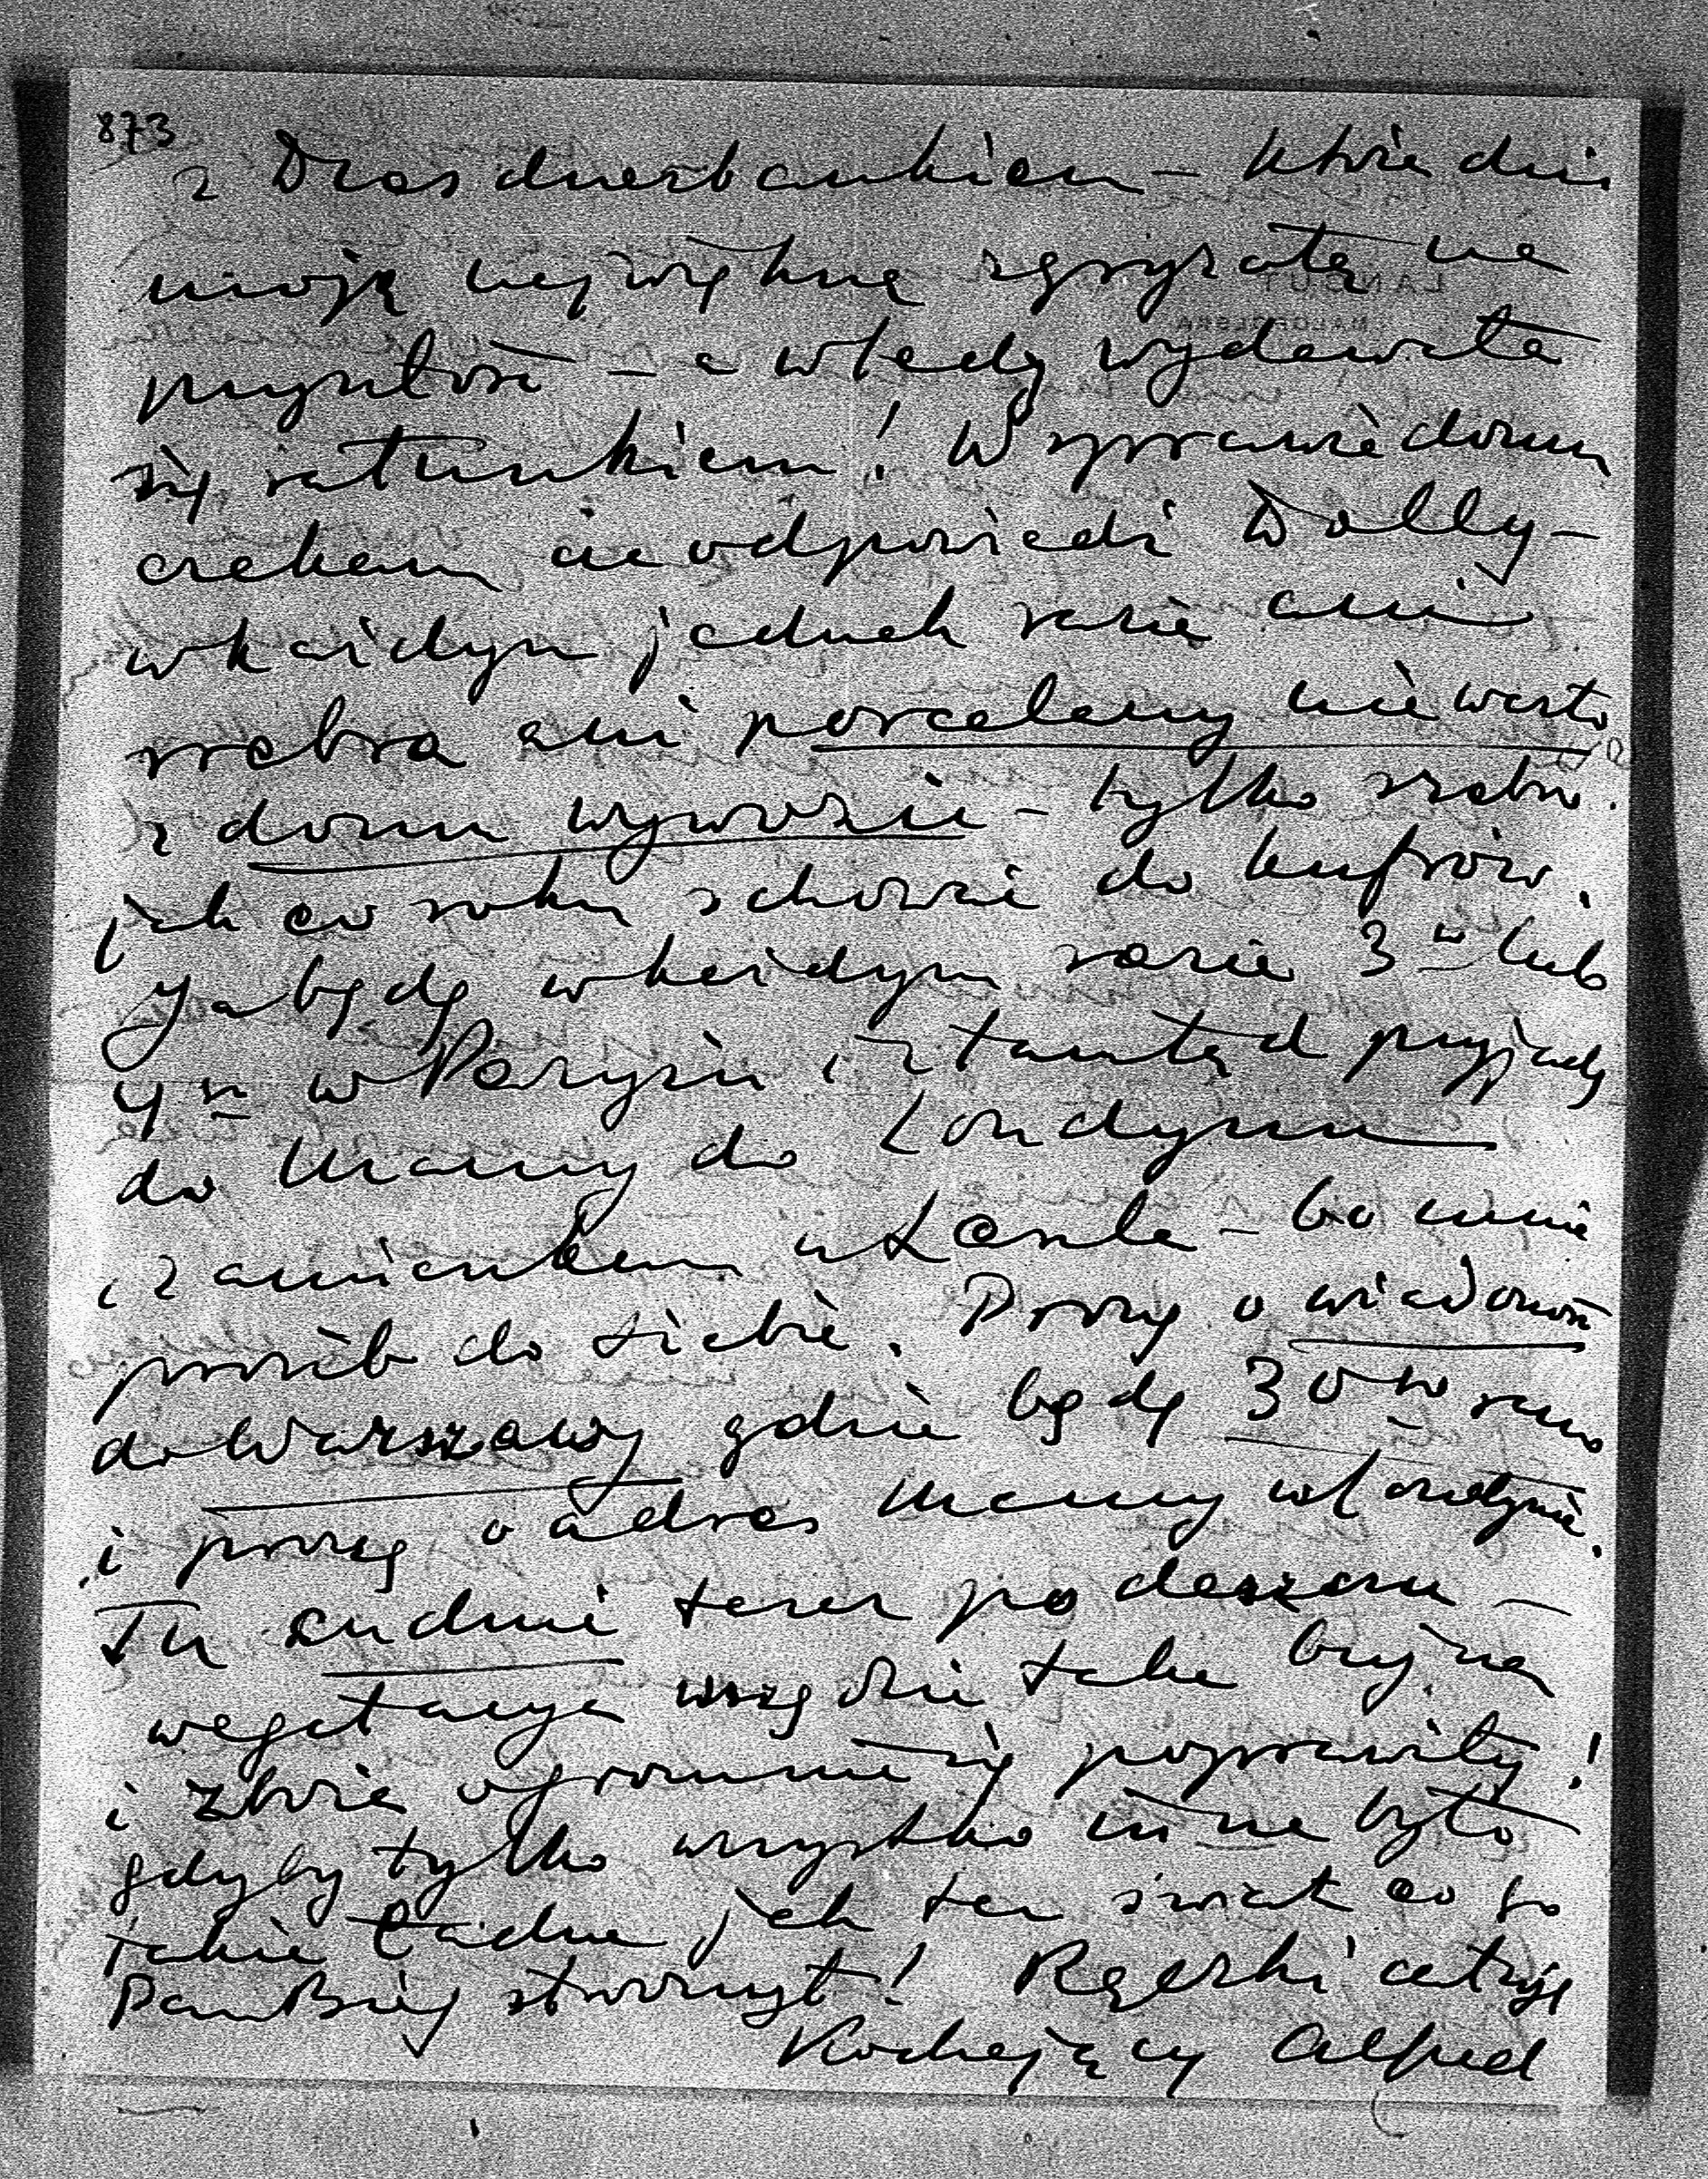 873
z Dresdnerbankiem – która dziś
moją największą zgryzotą na
przyszłość – a wtedy wydawała
się ratunkiem! W sprawie domu
czekam na odpowiedź Dolly –
w każdym jednak razie ani
srebra ani porcelany nie warto
z domu wywozić – tylko srebro
jak co roku schować do kufrów.
Ja będę w każdym razie 3go lub
4go w Paryżu i z tamtąd przyjadę
do Mamy do Londynu
i zamieszkam u – bo mnie
prosił do siebie. Proszę o wiadomość
do Warszawy gdzie będę 30go rano
i proszę o adres Mamy w Londynie.
Tu cudnie teraz po deszczu –
wegetacya wszędzie taka bujna
i zboża ogromnie się poprawiły!
gdyby tylko wszystko inne było
takie ładne jak ten świat co go
Pan Bóg stworzył! Rączki całuję
Kochający Alfred